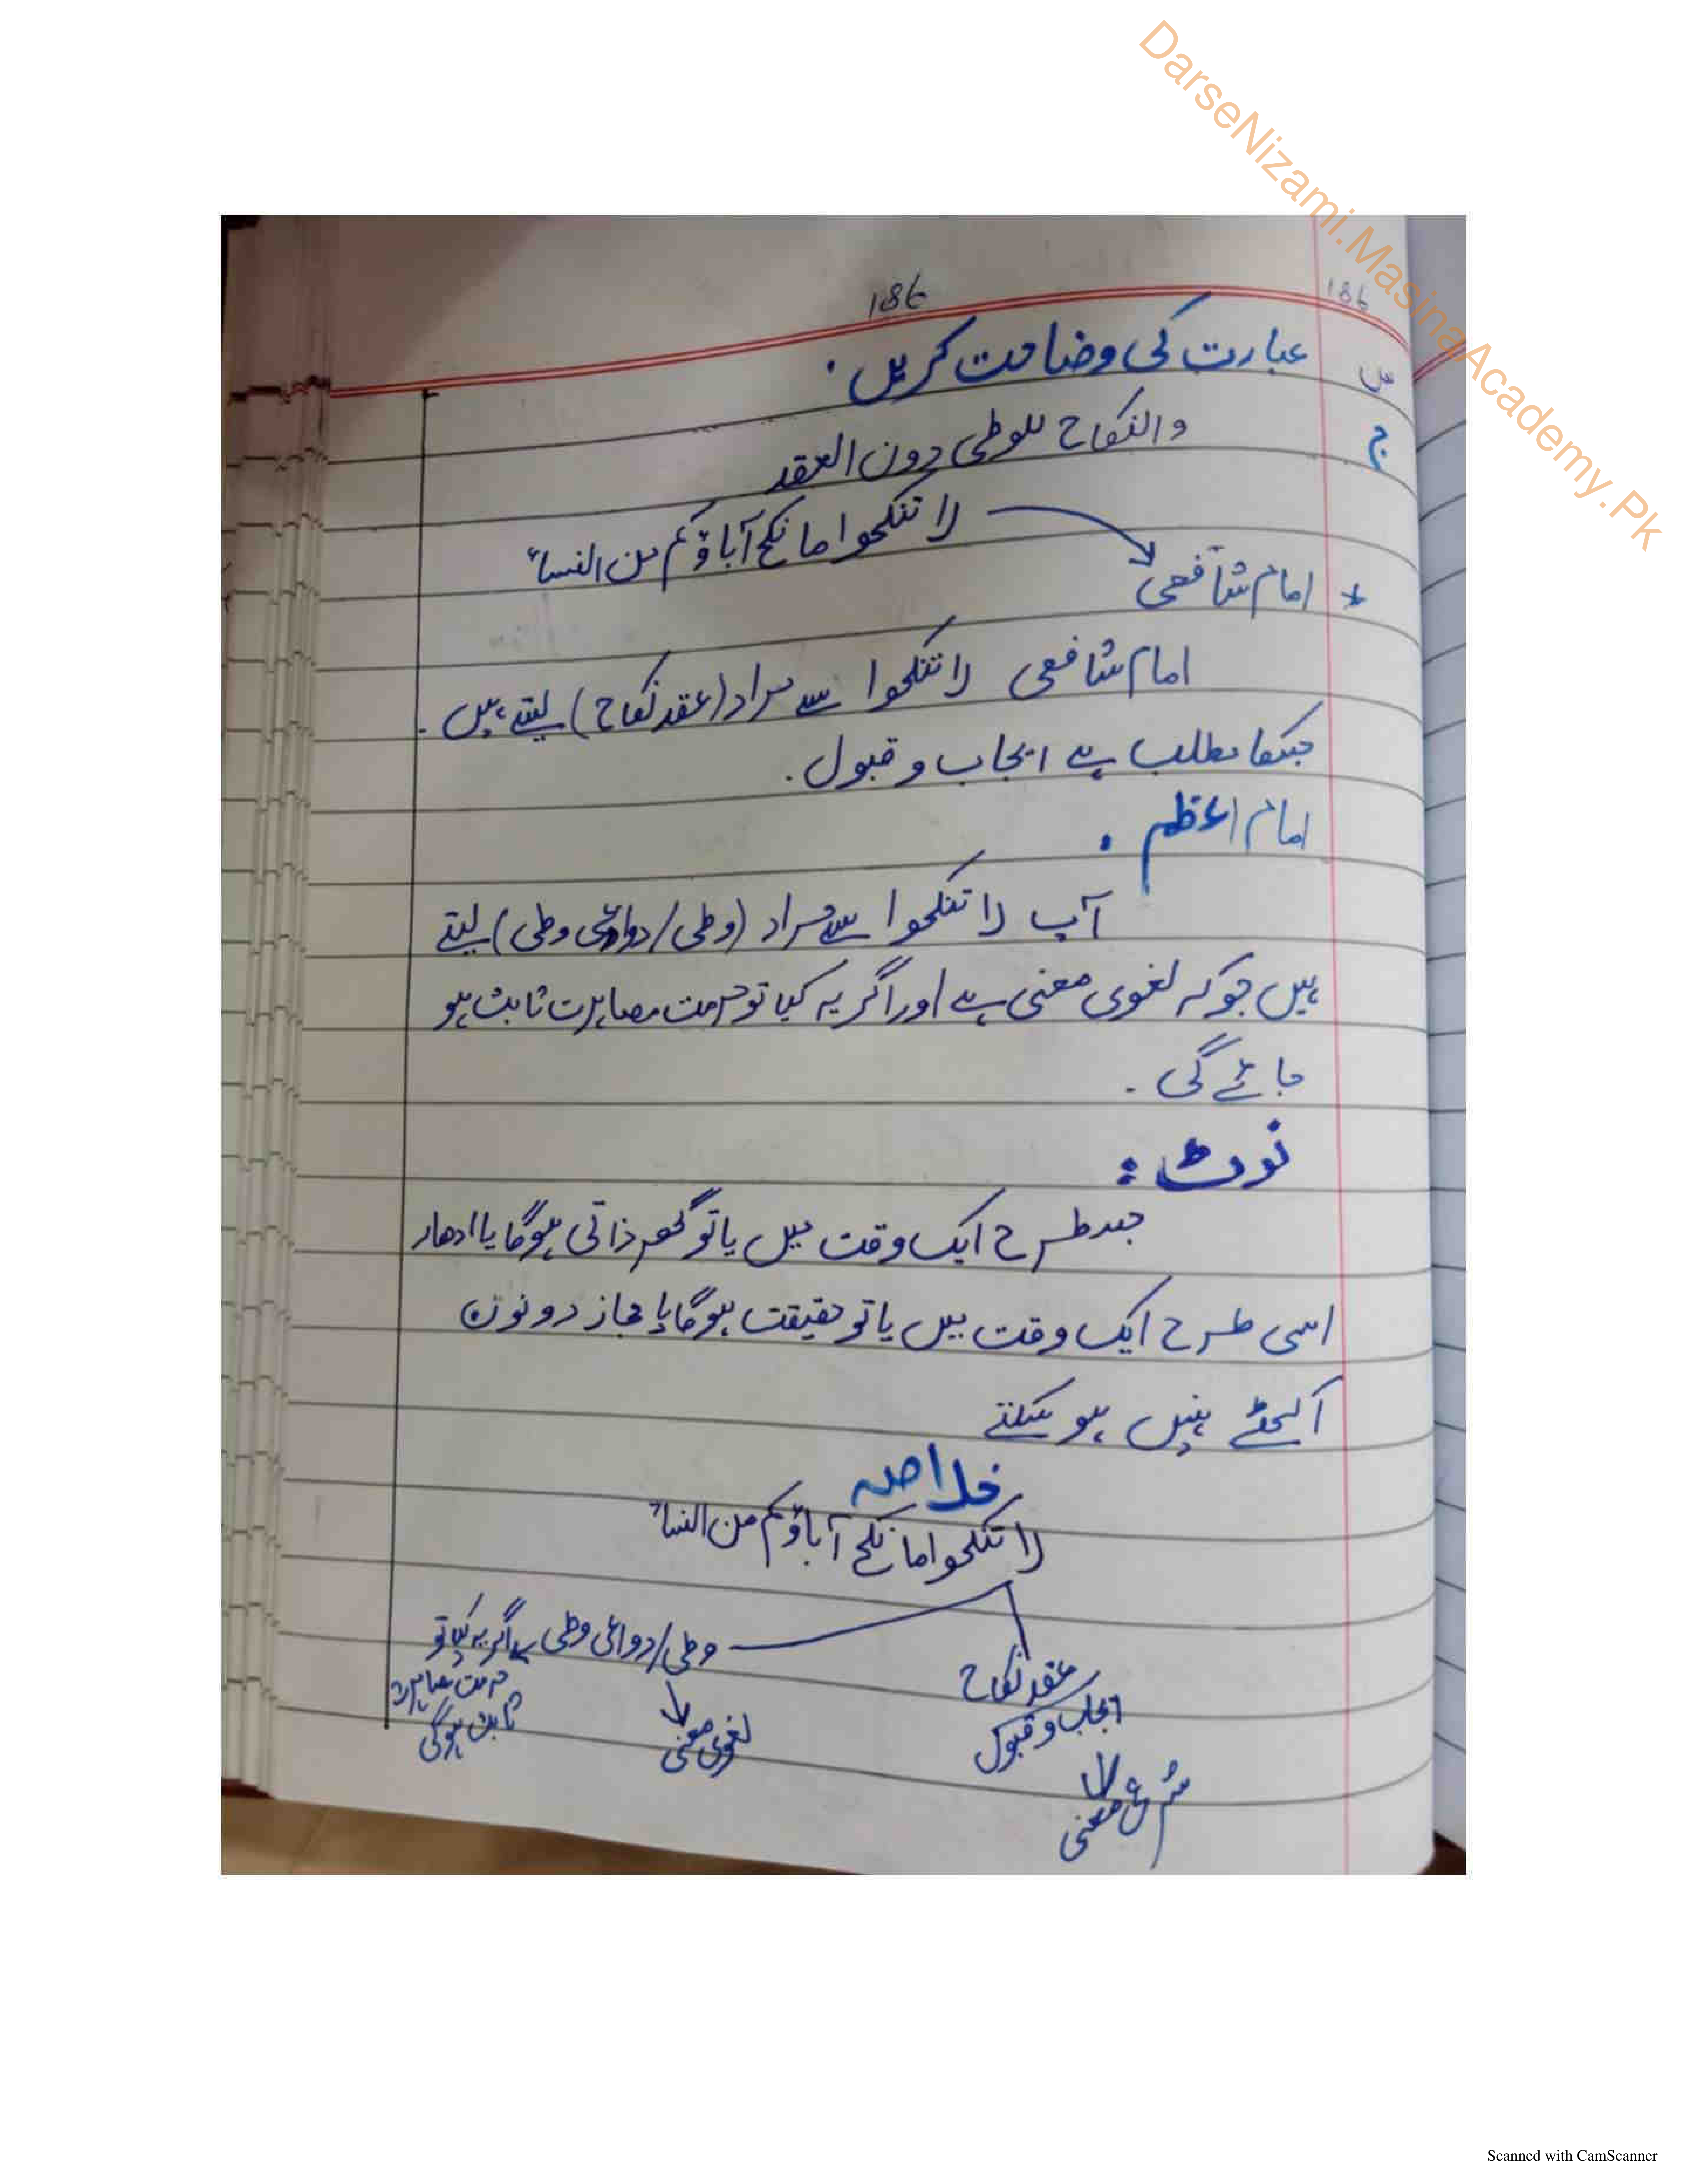 DarseNizami.MasinaAcademy.Pk
186
186
س عبارت کی وضاحت کریں۔
ج والنکاح للوطی دون العقد
لا تنکحوا ما نکح آباؤکم من النساء
* امام شافعی
امام شافعی لا تنکحوا سے مراد (عقد نکاح) لیتے ہیں۔
جسکا مطلب ہے ایجاب و قبول۔
امام اعظم۔
آپ لا تنکحوا سے مراد (وطی/دواعی وطی) لیتے
ہیں جو کہ لغوی معنی ہے اور اگر یہ کیا تو حرمت مصاہرت ثابت ہو
جائے گی۔
نوٹ:
جسطرح ایک وقت میں یا تو گھر ذاتی ہوگا یا ادھار
اسی طرح ایک وقت میں یا تو حقیقت ہوگا یا مجاز دونوں
اکھٹے نہیں ہو سکتے
خلاصہ
لا تنکحوا ما نکح آباؤکم من النساء
عقد نکاح
ایجاب و قبول
شرعی معنی
وطی/دواعی وطی
لغوی معنی
اگر یہ کیا تو
حرمت مصاہرت
ثابت ہوگی
Scanned with CamScanner